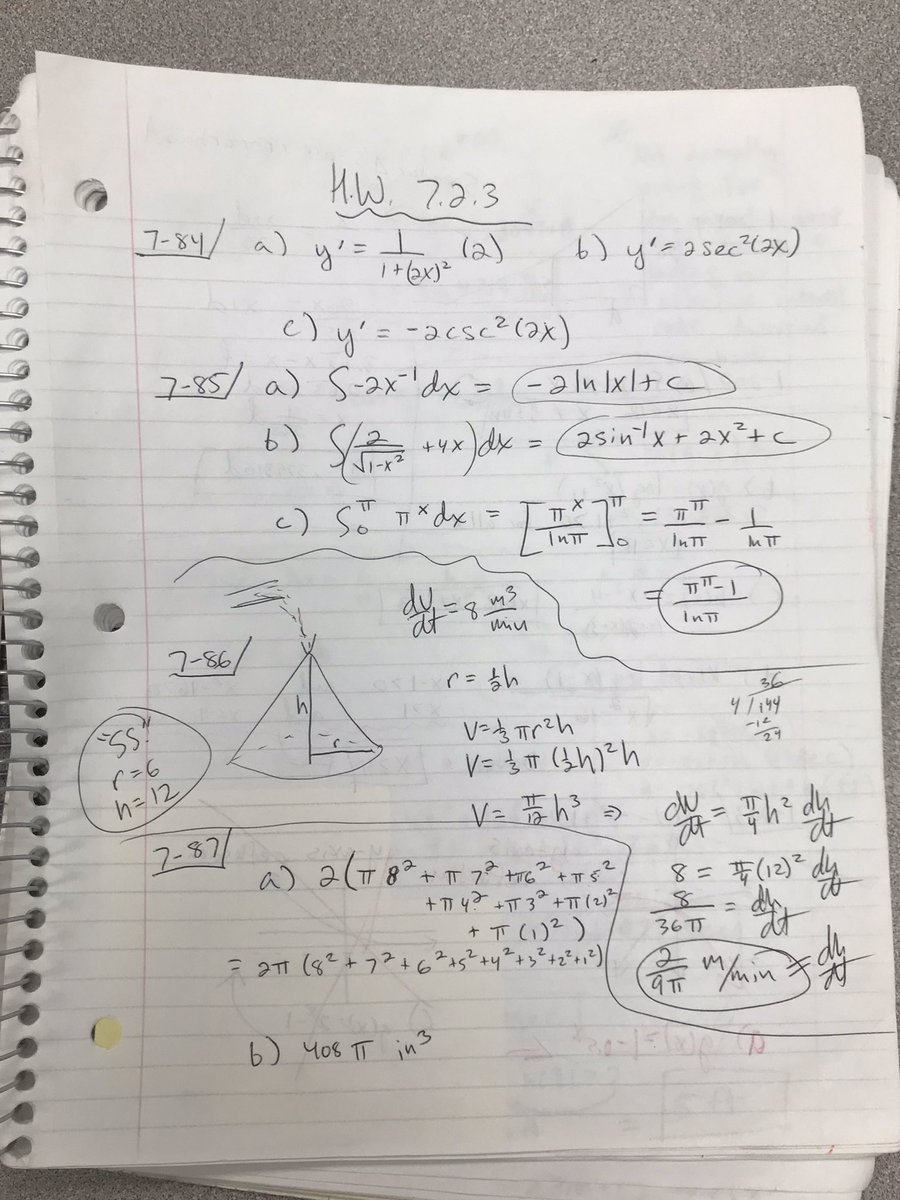 H.W. 7.2.3
7-84/ a) y' = 1/(1+(2x)²) (2) b) y' = 2sec²(2x)
c) y' = -2csc²(2x)
7-85/ a) ∫-2x⁻¹dx = -2ln|x|+c
b) ∫(2/√(1-x²) + 4x)dx = 2sin⁻¹x + 2x² + c
c) ∫₀^π π^x dx = [π^x/lnπ]₀^π = π^π/lnπ - 1/lnπ
= (π^π-1)/lnπ
7-86/
dV/dt = 8 m³/min
h
r
"SS"
r=6
h=12
r = ½h
V = ⅓πr²h
V = ⅓π(½h)²h
V = π/12 h³ ⇒ dV/dt = π/4 h² dh/dt
36
4/144
-12
24
8 = π/4(12)² dh/dt
8/36π = dh/dt
2/9π m/min = dh/dt
7-87/
a) 2(π8² + π7² + π6² + π5²
+ π4² + π3² + π(2)²
+ π(1)²)
= 2π(8² + 7² + 6² + 5² + 4² + 3² + 2² + 1²)
b) 408π in³